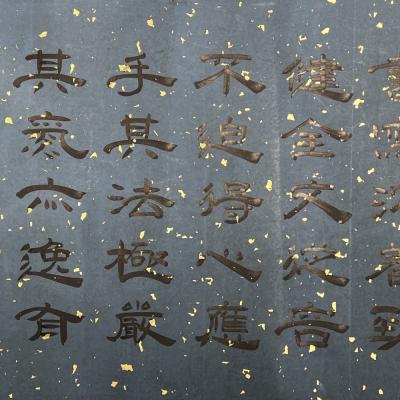 健全文從容
不迫得心應
手其法極嚴
其氣亦逸有